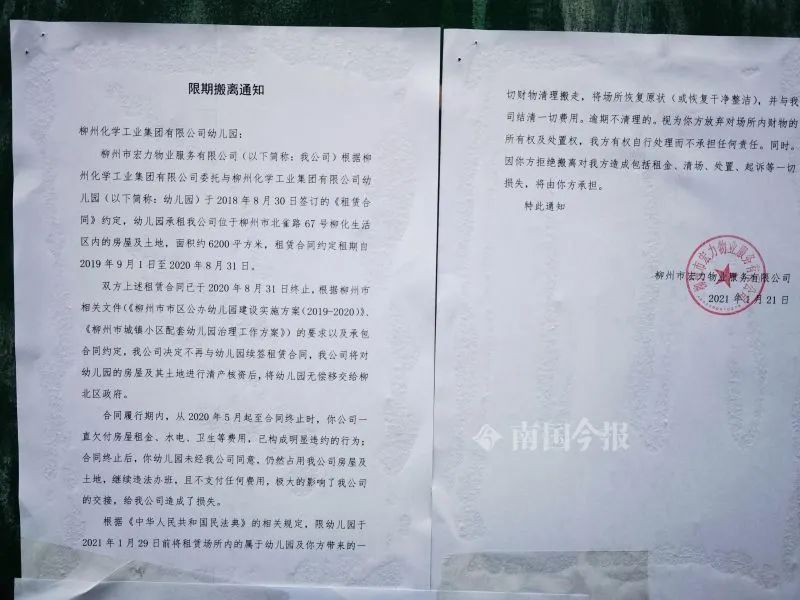 限期搬离通知
柳州化学工业集团有限公司幼儿园：
柳州市宏力物业服务有限公司（以下简称：我公司）根据柳
州化学工业集团有限公司委托与柳州化学工业集团有限公司幼
儿园（以下简称：幼儿园）于2018年8月30日签订的《租赁合
同》约定，幼儿园承租我公司位于柳州市北雀路67号柳化生活
区内的房屋及土地，面积约6200平方米，租赁合同约定租期自
2019年9月1日至2020年8月31日。
双方上述租赁合同已于2020年8月31日终止，根据柳州市
相关文件(《柳州市市区公办幼儿园建设实施方案(2019-2020)》、
《柳州市城镇小区配套幼儿园治理工作方案》）的要求以及承包
合同约定，我公司决定不再与幼儿园续签租赁合同，我公司将对
幼儿园的房屋及其土地进行清产核资后，将幼儿园无偿移交给柳
北区政府。
合同履行期内，从2020年5月起至合同终止时，你公司一
直欠付房屋租金、水电、卫生等费用，已构成明显违约的行为；
合同终止后，你幼儿园未经我公司同意，仍然占用我公司房屋及
土地，继续违法办班，且不支付任何费用，极大的影响了我公司
的交接，给我公司造成了损失。
根据《中华人民共和国民法典》的相关规定，限幼儿园于
2021年1月29日前将租赁场所内的属于幼儿园及你方带来的一
切财物清理搬走，将场所恢复原状（或恢复干净整洁），并与我
司结清一切费用。逾期不清理的。视为你方放弃对场所内财物的
所有权及处置权，我方有权自行处理而不承担任何责任。同时。
因你方拒绝搬离对我方造成包括租金、清场、处置、起诉等一切
损失，将由你方承担。
特此通知
柳州市宏力物业服务有限公司
2021年1月21日
柳州市宏力物业服务有限公司
南国今报